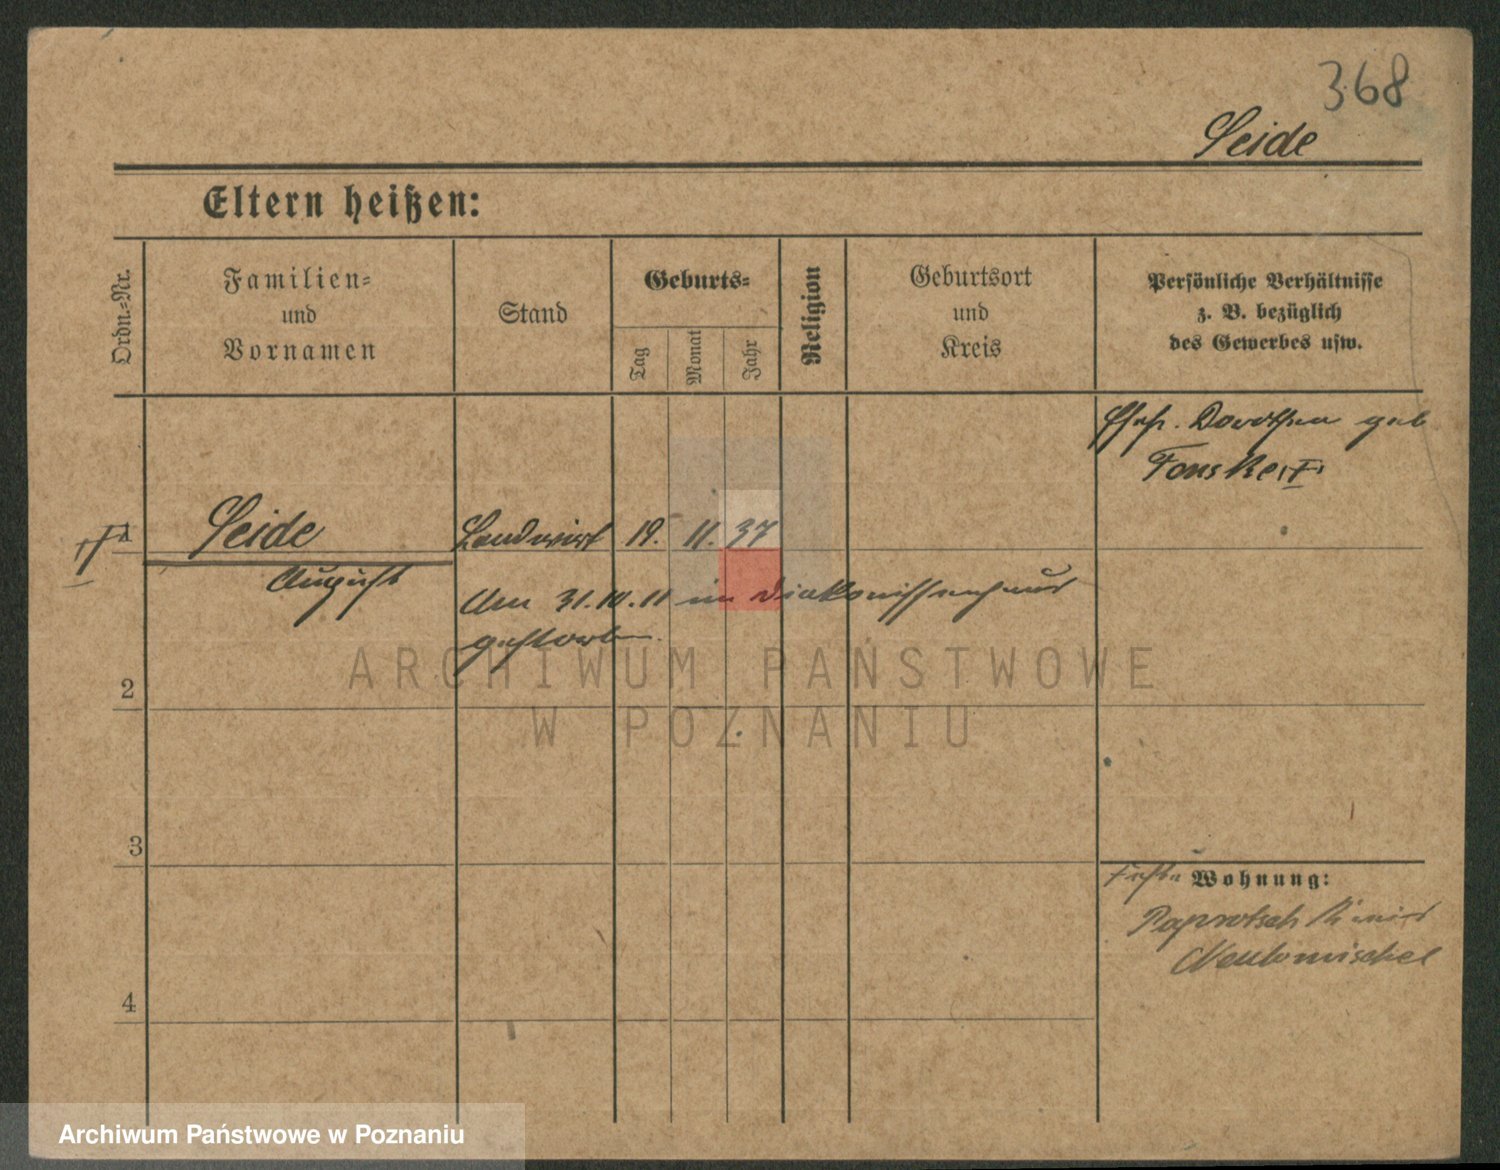 368
Seide
Eltern heißen:
Ordn.-Nr.
Familien-
und
Vornamen
Stand
Geburts-
Tag
Monat
Jahr
Religion
Geburtsort
und
Kreis
Persönliche Verhältnisse
z. B. bezüglich
des Gewerbes usw.
Ehefr. Dorothea geb
1
Seide
Landwirt
19.
11.
37
August
Am 31.10.11 im Diakonissenhaus
gestorben.
ARCHIWUM PAŃSTWOWE
W POZNANIU
2
3
4
Wohnung:
Paprotsch
Neutomischel
Archiwum Państwowe w Poznaniu